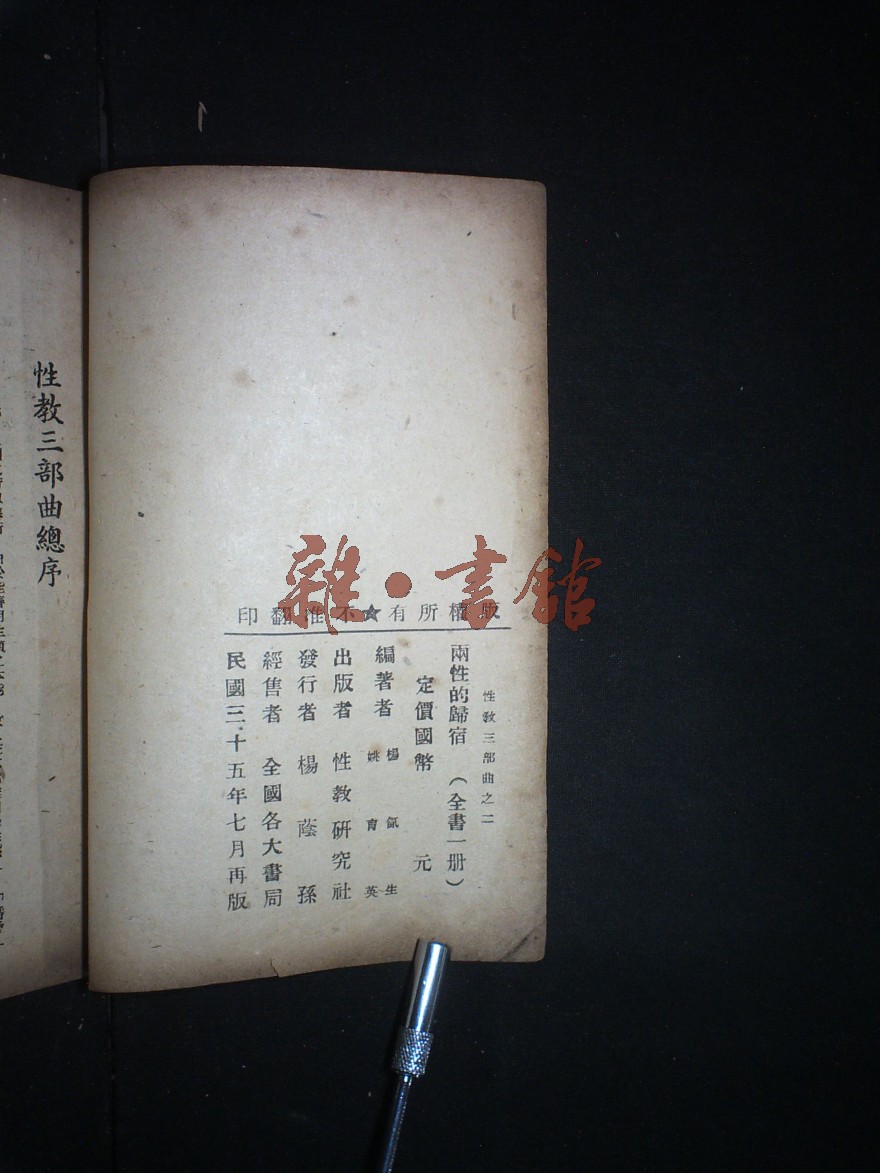 版權所有★不准翻印
性教三部曲之二
兩性的歸宿（全書一册）
定價國幣 元
編著者 楊氣生
姚育英
出版者 性教研究社
發行者 楊蔭孫
經售者 全國各大書局
民國三十五年七月再版
性教三部曲總序
雜·書館